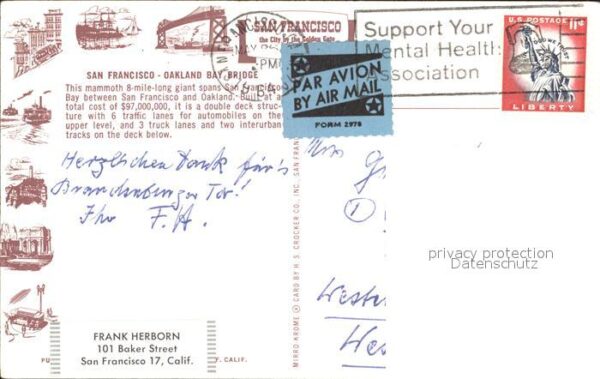 SAN FRANCISCO
the City by the Golden Gate
SAN FRANCISCO
PM
Support Your
Mental Health
Association
U.S. POSTAGE 11¢
IN GOD WE TRUST
LIBERTY
PAR AVION
BY AIR MAIL
FORM 2978
SAN FRANCISCO - OAKLAND BAY BRIDGE
This mammoth 8-mile-long giant spans San Francisco
Bay between San Francisco and Oakland. Built at a
total cost of $97,000,000, it is a double deck struc-
ture with 6 traffic lanes for automobiles on the
upper level, and 3 truck lanes and two interurban
tracks on the deck below.
Herzlichen Dank für's
Brandenburger Tor!
Ihr F. H.
MIRRO KROME ® CARD BY H. S. CROCKER CO., INC. SAN FRAN
Mrs
1
Western
privacy protection
Datenschutz
FRANK HERBORN
101 Baker Street
San Francisco 17, Calif.
PU
F. CALIF.